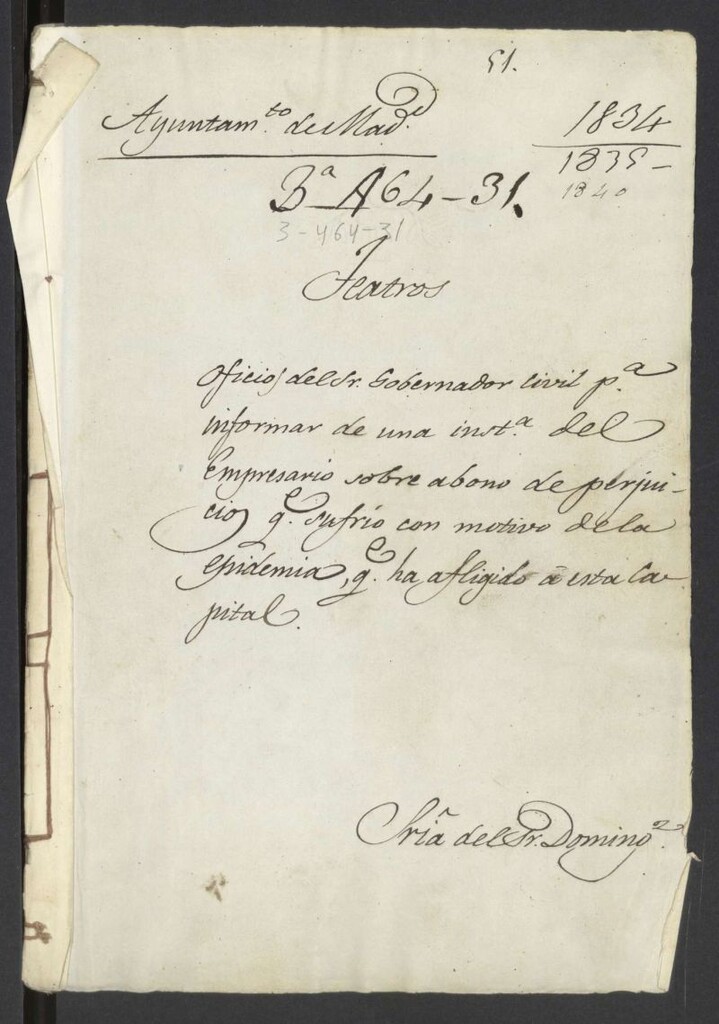 51.
Ayuntam.to de Mad.d
1834
1835-
1840
3ª A64-31.
3-464-31
Teatros
Oficio del Sr. Gobernador Civil p.a
informar de una inst.a del
Empresario sobre abono de perjui-
cios q.e sufrió con motivo de la
epidemia, q.e ha afligido á esta Ca-
pital.
Sría del Sr. Doming.z